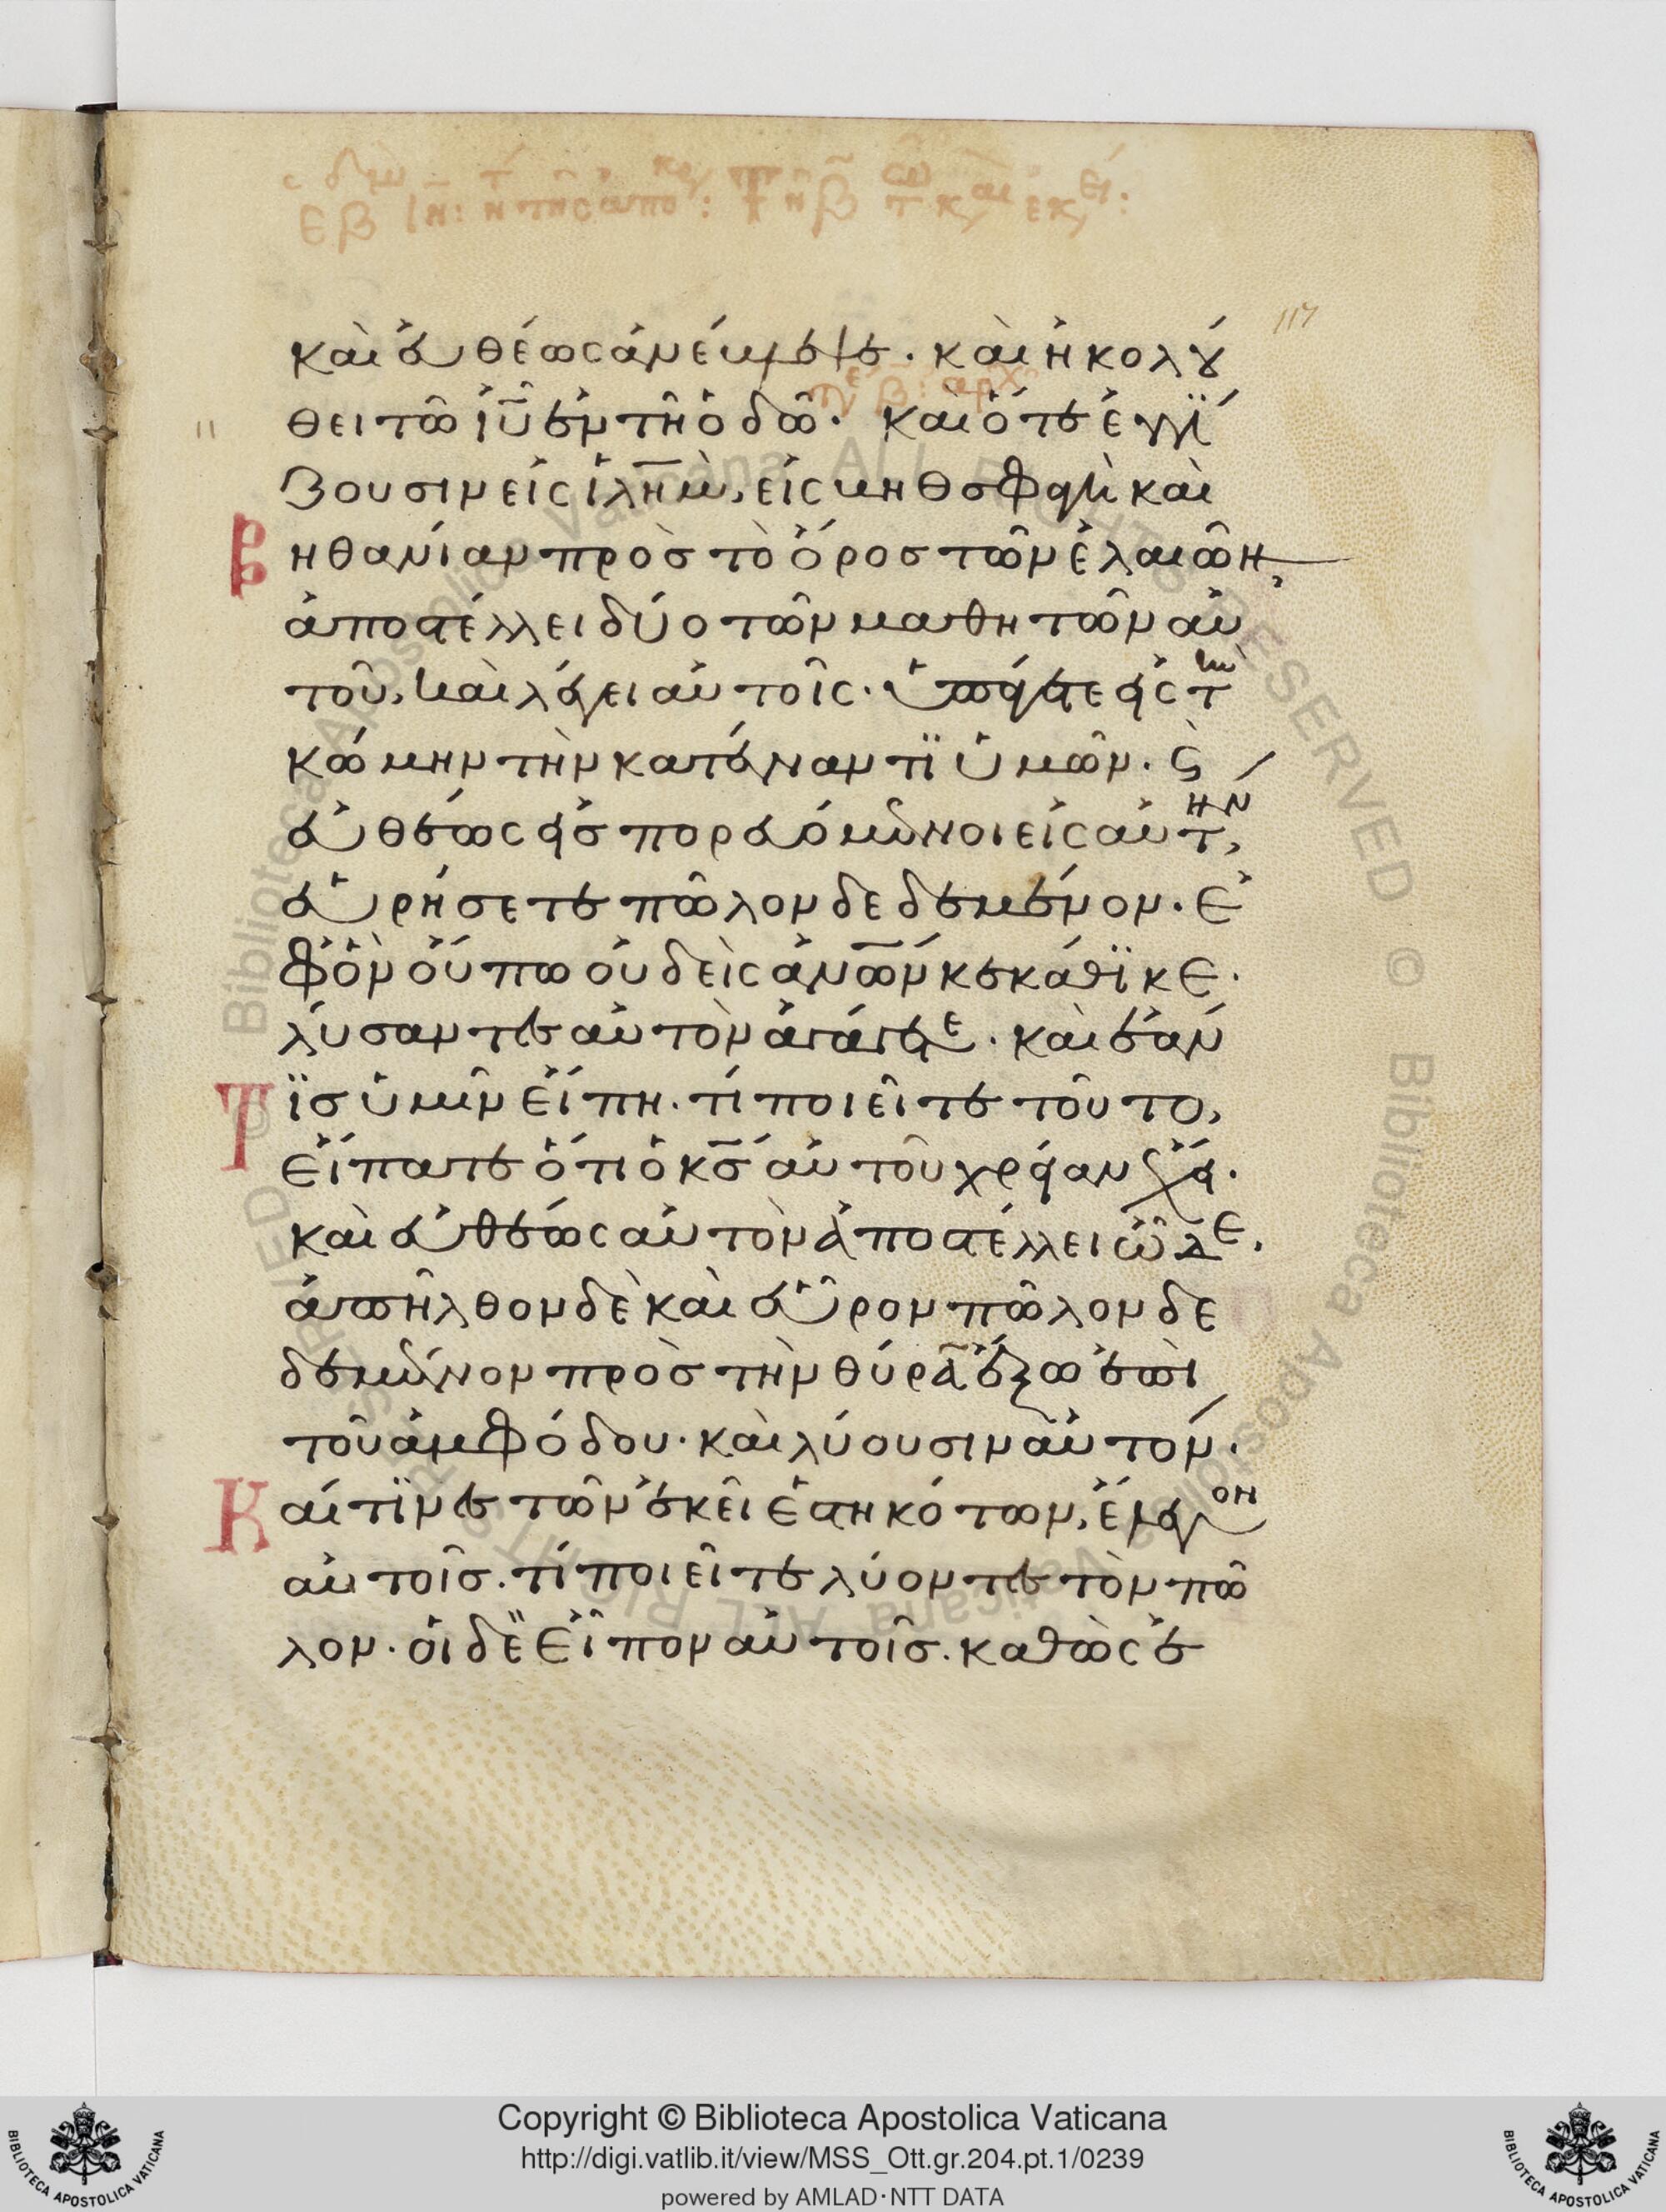 117
καὶ εὐθέως ἀνέβλεψε. καὶ ἠκολού
θει τῶ ἰῦ ἐν τῆ ὁδῶ. Και ὅτε ἐγγί
11
ζουσιν εἰς ἰλῆμ, εἰς βηθσφαγὴ καὶ
Βηθανίαν πρὸς τὸ ὄρος τῶν ἐλαιῶν,
ἀποστέλλει δύο τῶν μαθητῶν αὐ
τοῦ, καὶ λέγει αὐτοῖς. ὑπάγετε εἰς τὴν
κώμην τὴν κατέναντϊ ὑμῶν. ϛ
εὐθέως εἰσπορευόμενοι εἰς αὐτήν,
εὑρήσετε πῶλον δεδεμένον. ἐ
φ' ὃν οὔπω οὐδεὶς ἀνῶν κεκάθϊκε.
λύσαντες αὐτὸν ἀγάγετε. καὶ ἐάν
Τϊς ὑμῖν εἴπη. τί ποιεῖτε τοῦτο,
εἴπατε ὅτι ὁ κς αὐτοῦ χρείαν ἔχει.
καὶ εὐθέως αὐτὸν ἀποστέλλει ὧδε.
ἀπῆλθον δὲ καὶ εὗρον πῶλον δε
δεμένον πρὸς τὴν θύρα ἔξω ἐπὶ
τοῦ ἀμφόδου. καὶ λύουσιν αὐτόν.
Καί τϊνες τῶν ἐκεῖ ἑστηκότων, ἔλεγον
αὐτοῖς. τί ποιεῖτε λύοντες τὸν πῶ
λον. οἱ δὲ εἶπον αὐτοῖς. καθὼς ἐ
Copyright © Biblioteca Apostolica Vaticana
http://digi.vatlib.it/view/MSS_Ott.gr.204.pt.1/0239
powered by AMLAD·NTT DATA
BIBLIOTECA APOSTOLICA VATICANA
BIBLIOTECA APOSTOLICA VATICANA